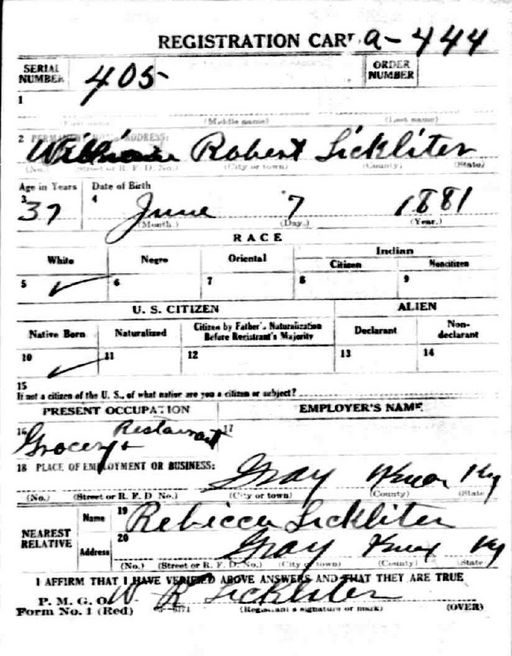 REGISTRATION CARD a-444
SERIAL NUMBER 405 ORDER NUMBER
1
(Middle name) (Last name)
2 PERMANENT HOME ADDRESS:
William Robert Lickliter
(No.) (Street or R. F. D. No.) (City or town) (County) (State)
Age in Years Date of Birth
3 37 4 June 7 1881
(Month.) (Day.) (Year.)
RACE
White Negro Oriental Indian
Citizen Noncitizen
5 ✓ 6 7 8 9
U. S. CITIZEN ALIEN
Native Born Naturalized Citizen by Father's Naturalization Before Registrant's Majority Declarant Non-declarant
10 ✓ 11 12 13 14
15
If not a citizen of the U. S., of what nation are you a citizen or subject?
PRESENT OCCUPATION EMPLOYER'S NAME
16 Grocery & Restaurant 17
18 PLACE OF EMPLOYMENT OR BUSINESS:
Gray Knox Ky
(No.) (Street or R. F. D. No.) (City or town) (County) (State)
NEAREST RELATIVE Name 19 Rebicca Lickliter
Address 20 Gray Knox Ky
(No.) (Street or R. F. D. No.) (City or town) (County) (State)
I AFFIRM THAT I HAVE VERIFIED ABOVE ANSWERS AND THAT THEY ARE TRUE
P. M. G. O. W R Lickliter
Form No. 1 (Red) (Registrant's signature or mark) (OVER)